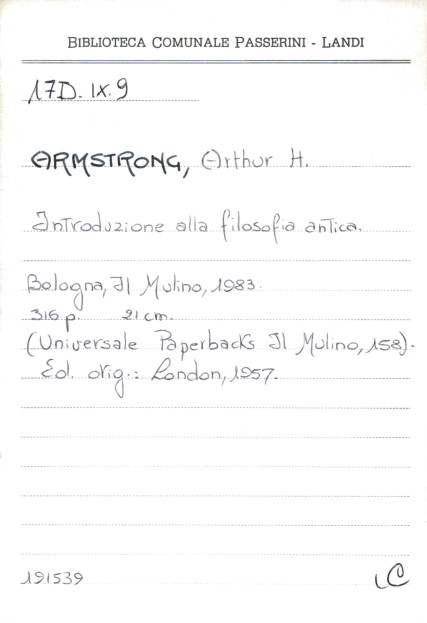 BIBLIOTECA COMUNALE PASSERINI - LANDI
17D. IX. 9
ARMSTRONG, Arthur H.
Introduzione alla filosofia antica.
Bologna, Il Mulino, 1983.
316 p. 21 cm.
(Universale Paperbacks Il Mulino, 158).
Ed. orig.: London, 1957.
191539